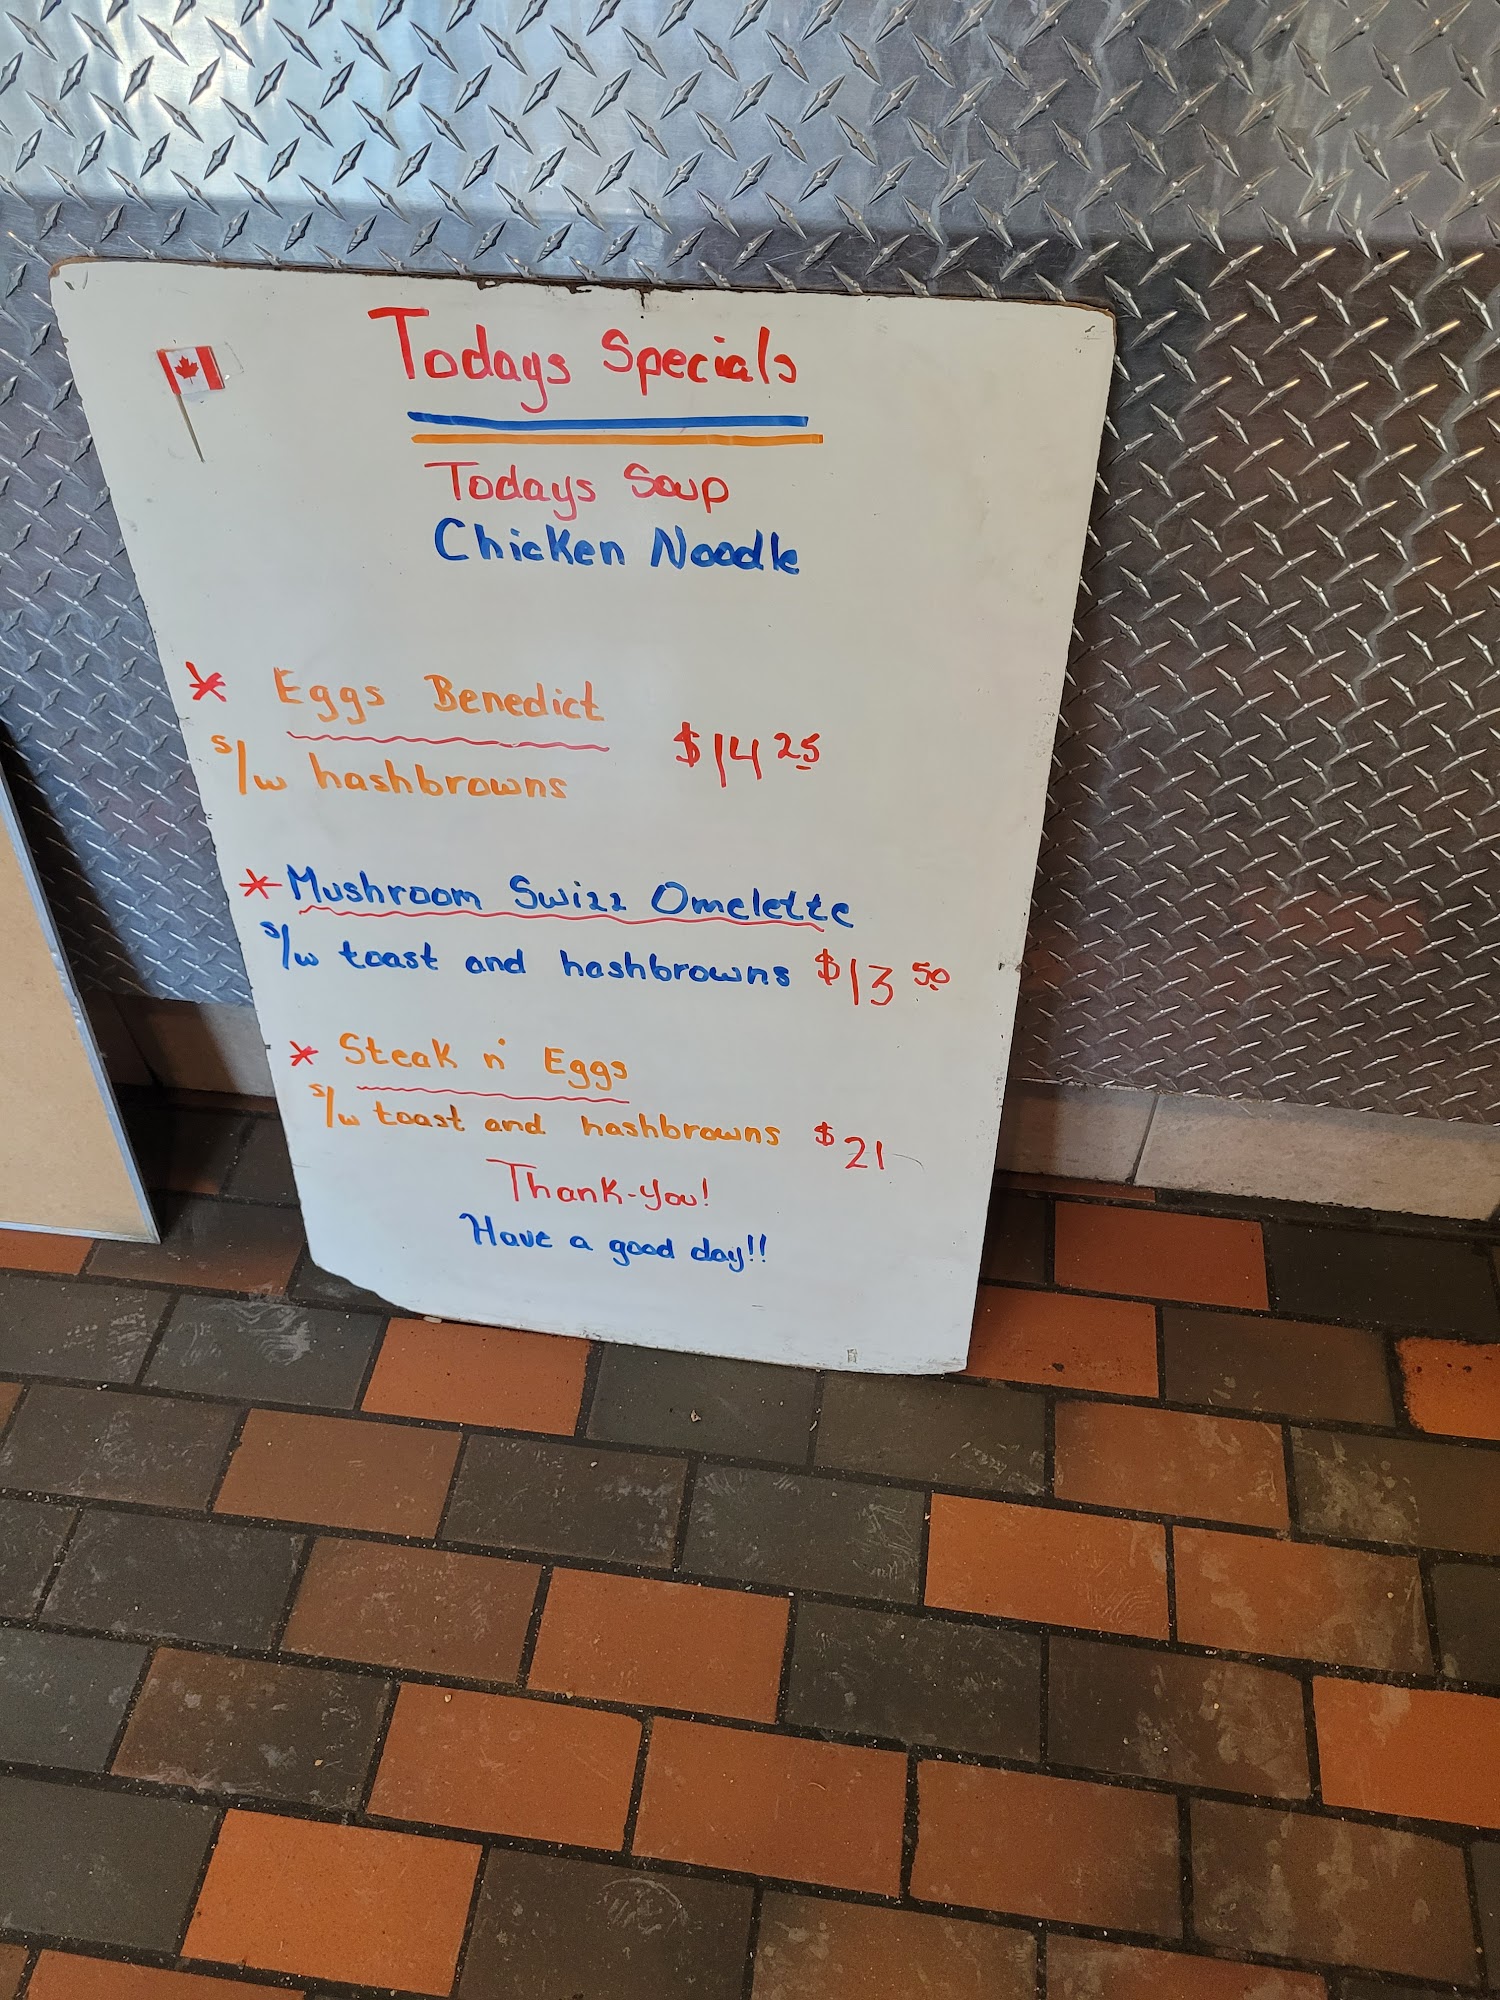 Todays Specials
Todays Soup
Chicken Noodle
* Eggs Benedict
s/w hashbrowns $14 25
* Mushroom Swizz Omelette
s/w toast and hashbrowns $13 50
* Steak n' Eggs
s/w toast and hashbrowns $21
Thank-You!
Have a good day!!